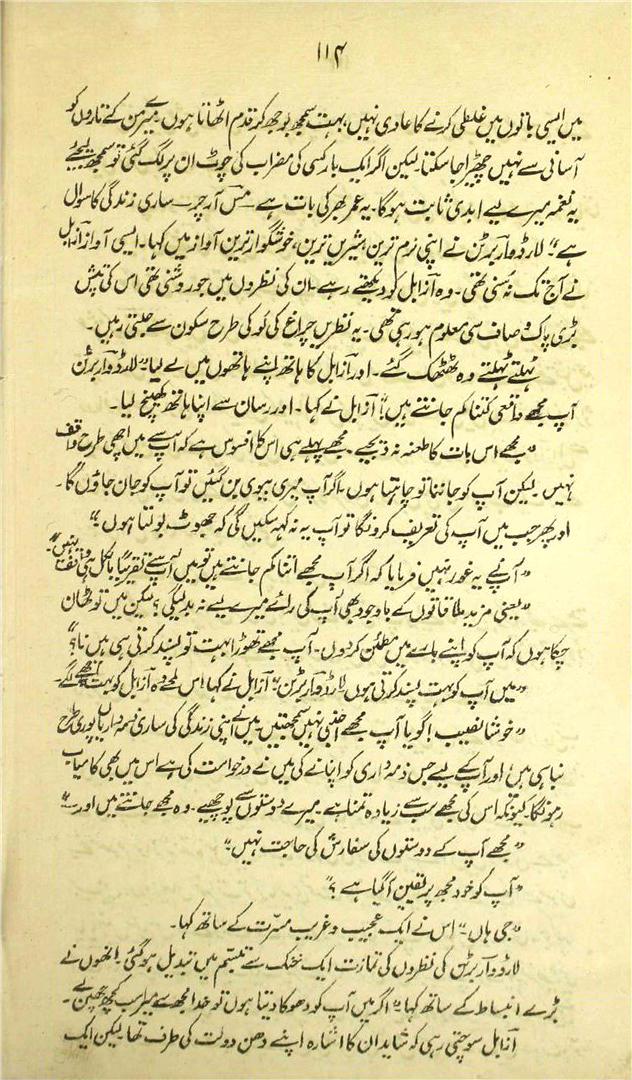 ۱۱۴
میں ایسی باتوں میں غلطی کرنے کا عادی نہیں، بہت سمجھ بوجھ کر قدم اٹھاتا ہوں۔ میرے من کے تاروں کو
آسانی سے نہیں چھیڑا جا سکتا۔ لیکن اگر ایک بار کسی کی مضراب کی چوٹ ان پر لگ گئی تو سمجھ لیجئے
یہ نغمہ میرے لیے ابدی ثابت ہوگا۔ یہ عمر بھر کی بات ہے۔ مس آرچر۔ ساری زندگی کا سوال
ہے" لارڈ واربرٹن نے اپنی نرم ترین، شیریں ترین، خوشگوار ترین آواز میں کہا۔ ایسی آواز آزابل
نے آج تک نہ سنی تھی۔ وہ آزابل کو دیکھتے رہے۔ ان کی نظروں میں جو روشنی تھی اس کی تپش
بڑی پاک و صاف سی معلوم ہو رہی تھی۔ یہ نظریں چراغ کی لو کی طرح سکون سے جلتی رہیں۔
ٹہلتے ٹہلتے وہ ٹھٹھک گئے۔ اور آزابل کا ہاتھ اپنے ہاتھوں میں لے لیا۔" لارڈ واربرٹن
آپ مجھے واقعی کتنا کم جانتے ہیں!" آزابل نے کہا۔ اور رسان سے اپنا ہاتھ کھینچ لیا۔
"مجھے اس بات کا طعنہ نہ دیجیے۔ مجھے پہلے ہی اس کا افسوس ہے کہ آپ سے میں اچھی طرح واقف
نہیں۔ لیکن آپ کو جاننا تو چاہتا ہوں۔ اگر آپ میری بیوی بن گئیں تو آپ کو جان جاؤں گا۔
اور پھر جب میں آپ کی تعریف کرونگا تو آپ یہ نہ کہہ سکیں گی کہ جھوٹ بولتا ہوں۔"
"آپ نے یہ غور نہیں فرمایا کہ اگر آپ مجھے اتنا کم جانتے ہیں تو میں آپ سے تقریباً بالکل ہی واقف نہیں"
"یعنی مزید ملاقاتوں کے باوجود بھی آپ کی رائے میرے لیے نہ بدلیگی؟ لیکن میں تو ٹھان
چکا ہوں کہ آپ کو اپنے بارے میں مطمئن کر دوں۔ آپ مجھے تھوڑا بہت تو پسند کرتی ہی ہیں نا؟"
"میں آپ کو بہت پسند کرتی ہوں لارڈ واربرٹن" آزابل نے کہا اس لمحے وہ آزابل کو بہت اچھے لگے۔
"خوشا نصیب! گویا آپ مجھے اجنبی نہیں سمجھتیں۔ میں نے اپنی زندگی کی ساری ذمہ داریاں پوری طرح
نباہی ہیں اور آپ کے لیے جس ذمہ داری کو اپنانے کی میں نے درخواست کی ہے اس میں بھی کامیاب
رہونگا۔ کیونکہ اس کی مجھے سب سے زیادہ تمنا ہے۔ میرے دوستوں سے پوچھیے۔ وہ مجھے جانتے ہیں اور۔۔"
"مجھے آپ کے دوستوں کی سفارش کی حاجت نہیں"
"آپ کو خود مجھ پر یقین آگیا ہے؟"
"جی ہاں" اس نے ایک عجیب و غریب مسرت کے ساتھ کہا۔
لارڈ واربرٹن کی نظروں کی تمازت ایک خنک سے تبسم میں تبدیل ہو گئی۔ انھوں نے
بڑے انبساط کے ساتھ کہا" اگر میں آپ کو دھوکا دیتا ہوں تو خدا مجھ سے میرا سب کچھ چھین لے۔
آزابل سوچتی رہی کہ شاید ان کا اشارہ اپنے دھن دولت کی طرف تھا۔ لیکن ایک